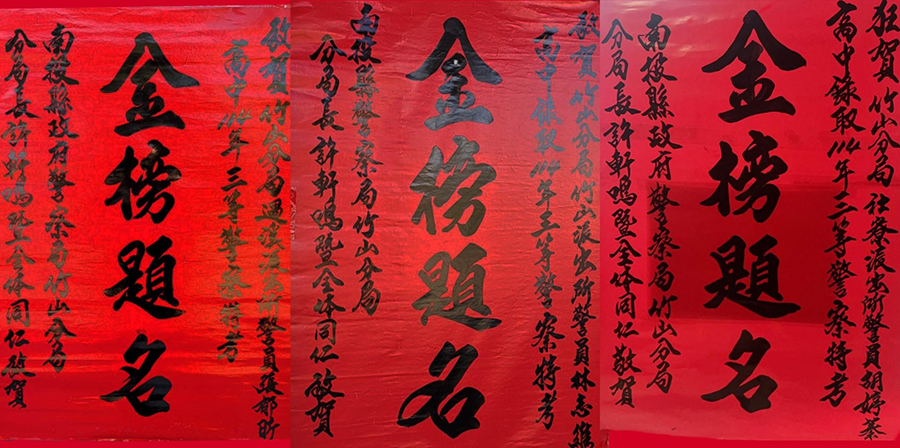 敬賀竹山分局過溪派出所警員張郁昕
高中114年三等警察特考
金榜題名
南投縣政府警察局竹山分局
分局長許軒鳴暨全体同仁敬賀
敬賀竹山分局竹山派出所警員林志
高中錄取114年三等警察特考
金榜題名
南投縣警察局竹山分局
分局長許軒鳴暨全体同仁敬賀
狂賀竹山分局社寮派出所警員胡婷
高中錄取114年三等警察特考
金榜題名
南投縣政府警察局竹山分局
分局長許軒鳴暨全体同仁敬賀